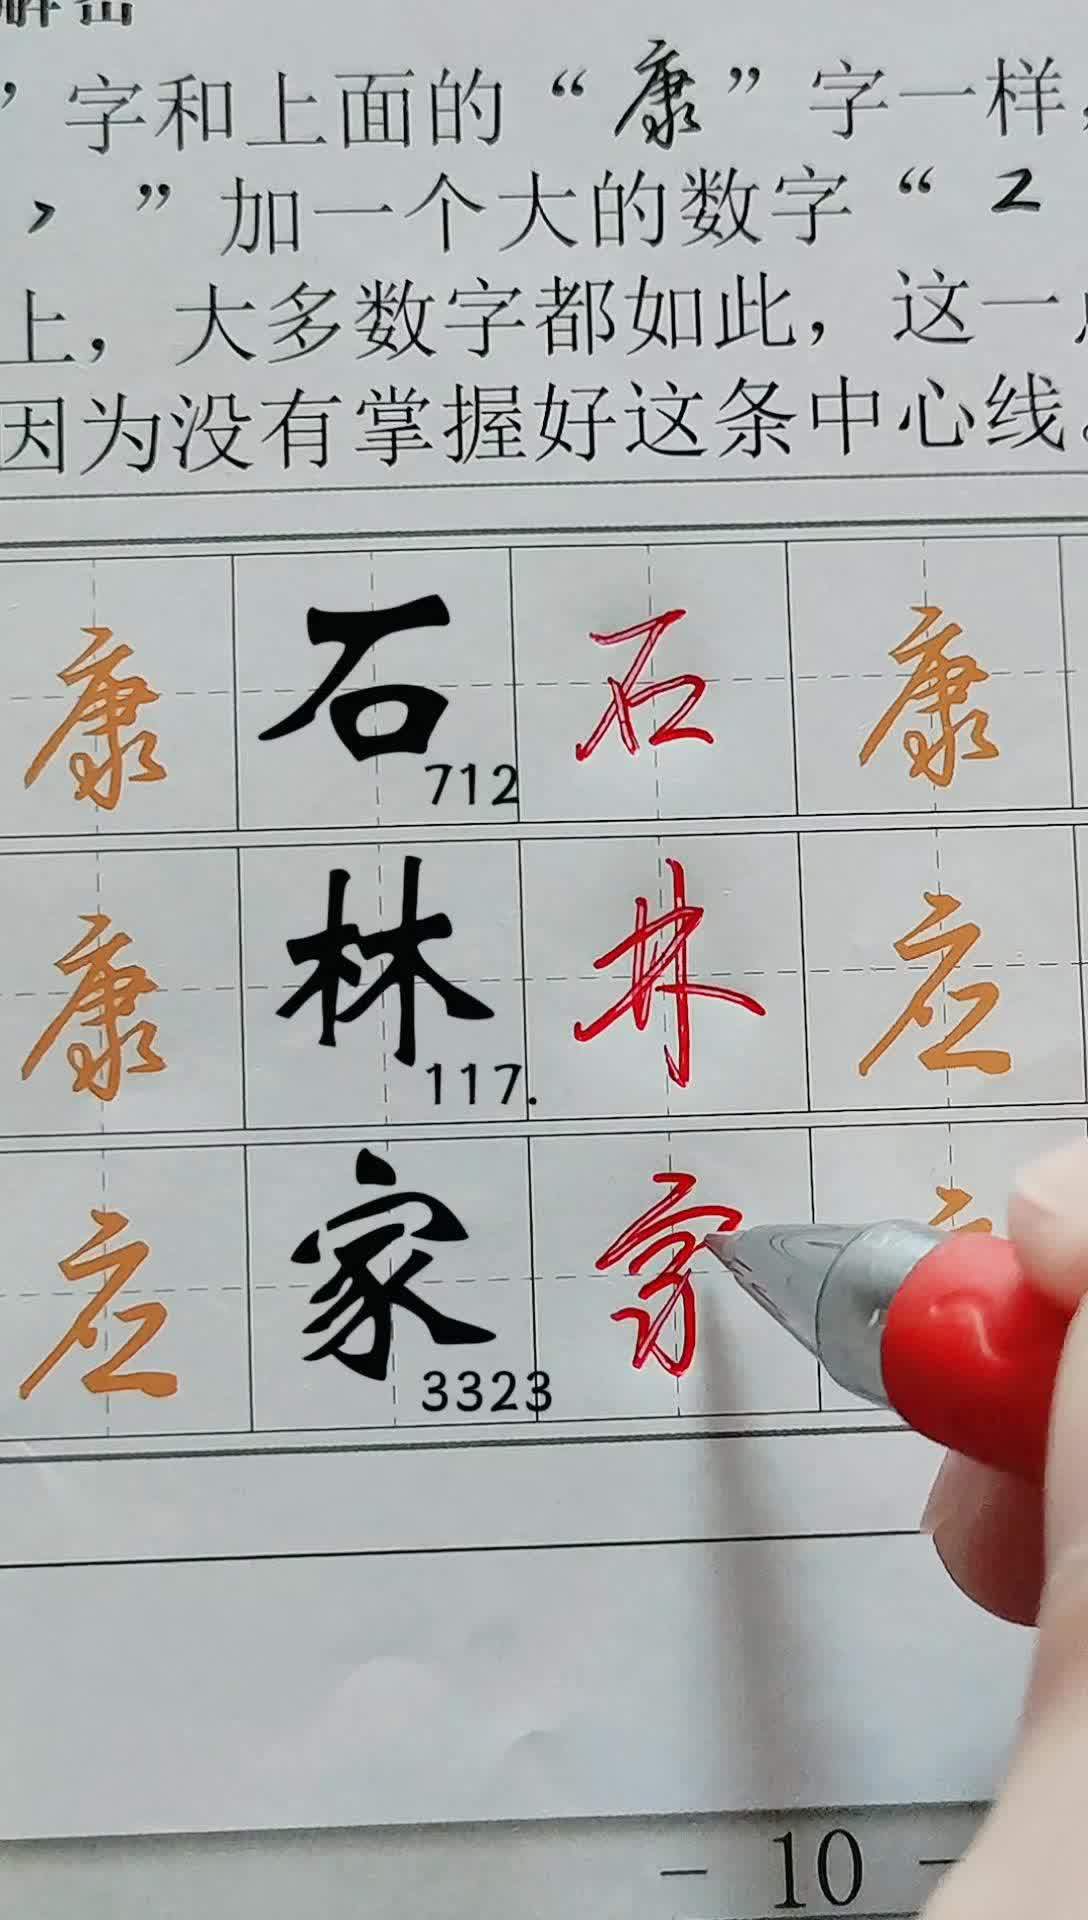 解密
”字和上面的“康”字一样，
”加一个大的数字“2
上，大多数字都如此，这一
因为没有掌握好这条中心线。
康 石 石 康
712
康 林 林 应
117.
应 家 家
3323
- 10 -